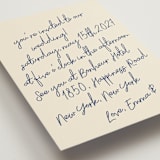 you're invited to our
wedding!
saturday, may 15th, 2021
at five o'clock in the afternoon
See you at Banhaur Hotel
1850, Happiness Road,
New York, New York
Love, Emma &